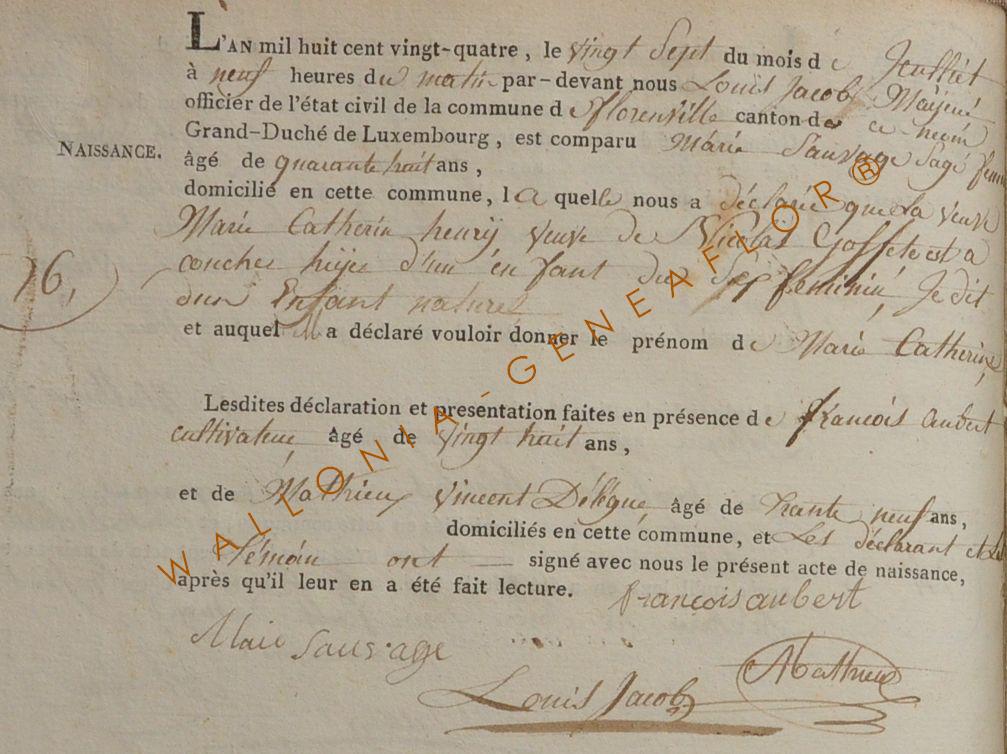 L'AN mil huit cent vingt-quatre, le vingt Sept du mois de Jeulliet
à neuf heures du matin par-devant nous Louis Jacob Mayeur
officier de l'état civil de la commune de florenville canton de ce nom
Grand-Duché de Luxembourg, est comparu Marie Sauvage Sage femme
NAISSANCE.
âgé de quarante huit ans,
domicilié en cette commune, la quelle nous a déclaré que la veuve
Marie Catherin henrÿ veuve de Nicolas Goffete est a
couchez d'un enfant du Sex feminin, Je dit
d'un Enfant naturel
16,
et auquel a déclaré vouloir donner le prénom de Marie Catherine,
Lesdites déclaration et présentation faites en présence de francois aubert
cultivateur âgé de vingt huit ans,
et de Mathieux Vincent Délégué âgé de trante neuf ans,
domiciliés en cette commune, et Les déclarant et Le
témoin ont signé avec nous le présent acte de naissance,
après qu'il leur en a été fait lecture.
françois aubert
Marie Sauvage
Louis Jacob
Mathieu
WALLONIA-GENEAFLOR®